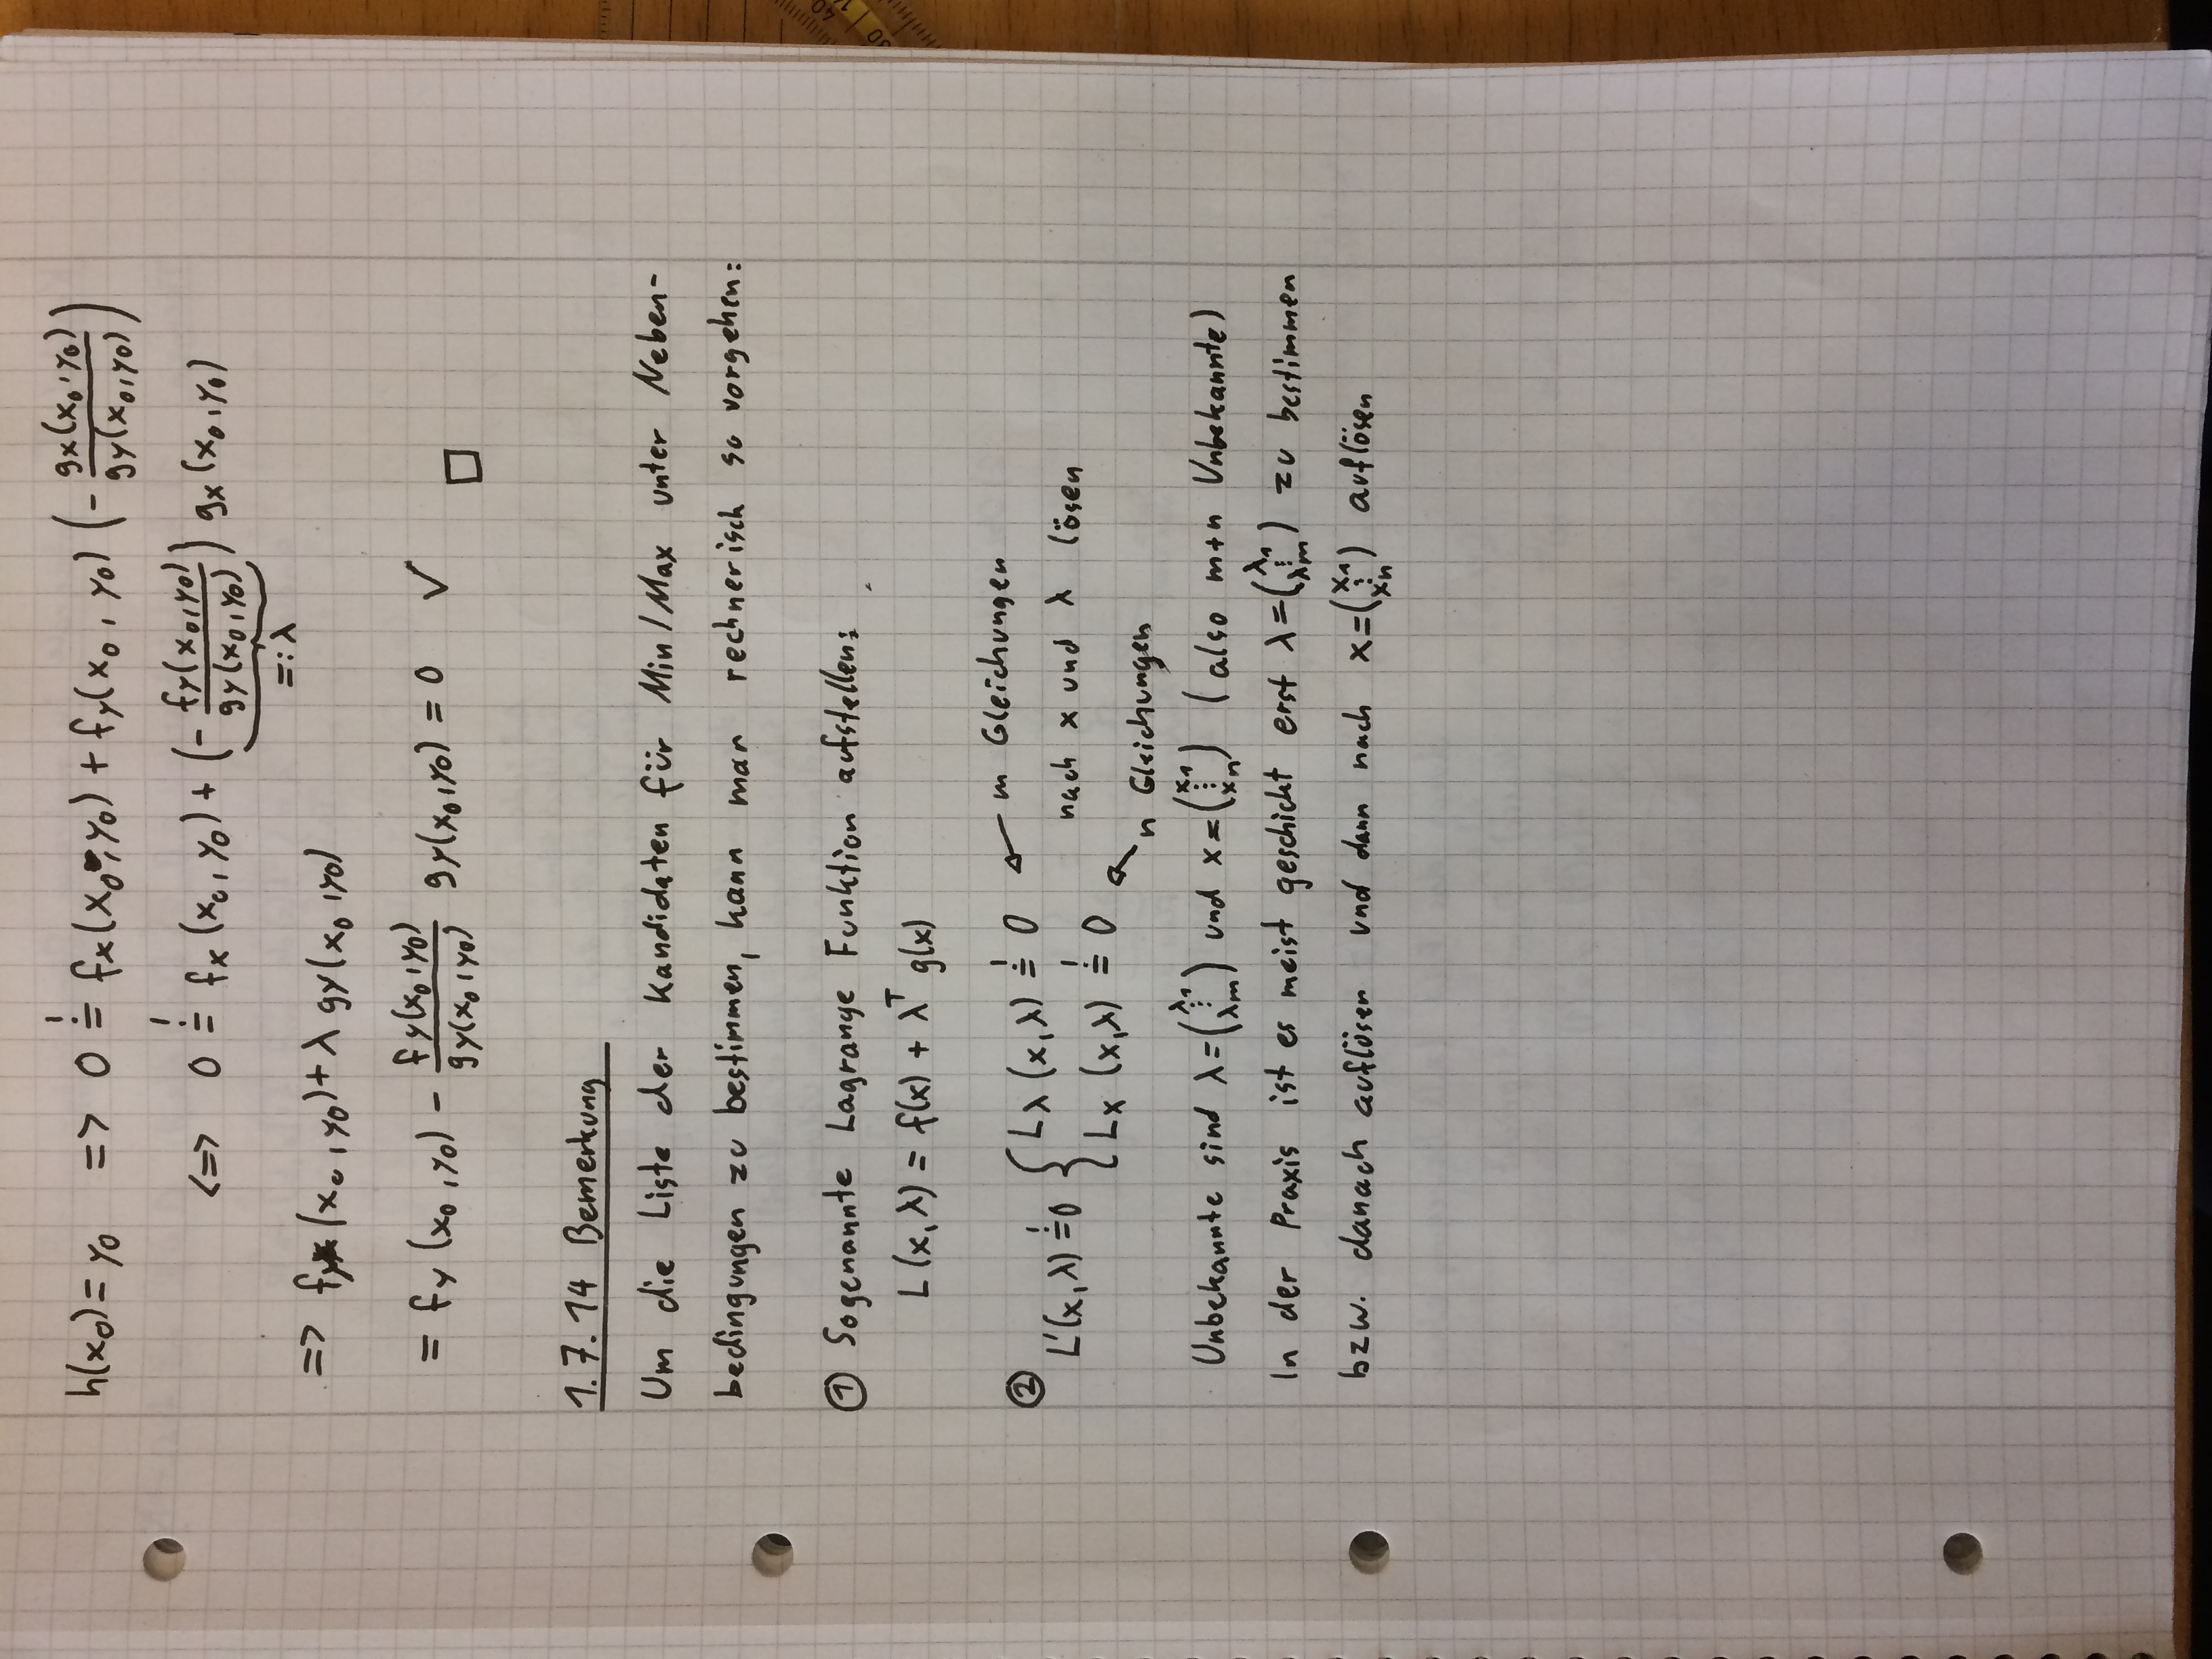 h(x₀) = y₀ => 0 =! fx(x₀, y₀) + fy(x₀, y₀) (- gx(x₀, y₀) / gy(x₀, y₀))
<=> 0 =! fx(x₀, y₀) + (- fy(x₀, y₀) / gy(x₀, y₀)) gx(x₀, y₀)
=: λ
=> fy(x₀, y₀) + λ gy(x₀, y₀)
= fy(x₀, y₀) - fy(x₀, y₀) / gy(x₀, y₀) gy(x₀, y₀) = 0 ✓ □
1.7.14 Bemerkung
Um die Liste der Kandidaten für Min/Max unter Neben-
bedingungen zu bestimmen, kann man rechnerisch so vorgehen:
① Sogenannte Lagrange Funktion aufstellen:
L(x, λ) = f(x) + λᵀ g(x)
② L'(x, λ) =! 0 { Lλ(x, λ) =! 0 ← m Gleichungen
nach x und λ lösen
Lx(x, λ) =! 0 ← n Gleichungen
Unbekannte sind λ = (λ₁ ⋮ λm) und x = (x₁ ⋮ xn) (also m+n Unbekannte)
In der Praxis ist es meist geschickt erst λ = (λ₁ ⋮ λm) zu bestimmen
bzw. danach auflösen und dann nach x = (x₁ ⋮ xn) auflösen
40
30